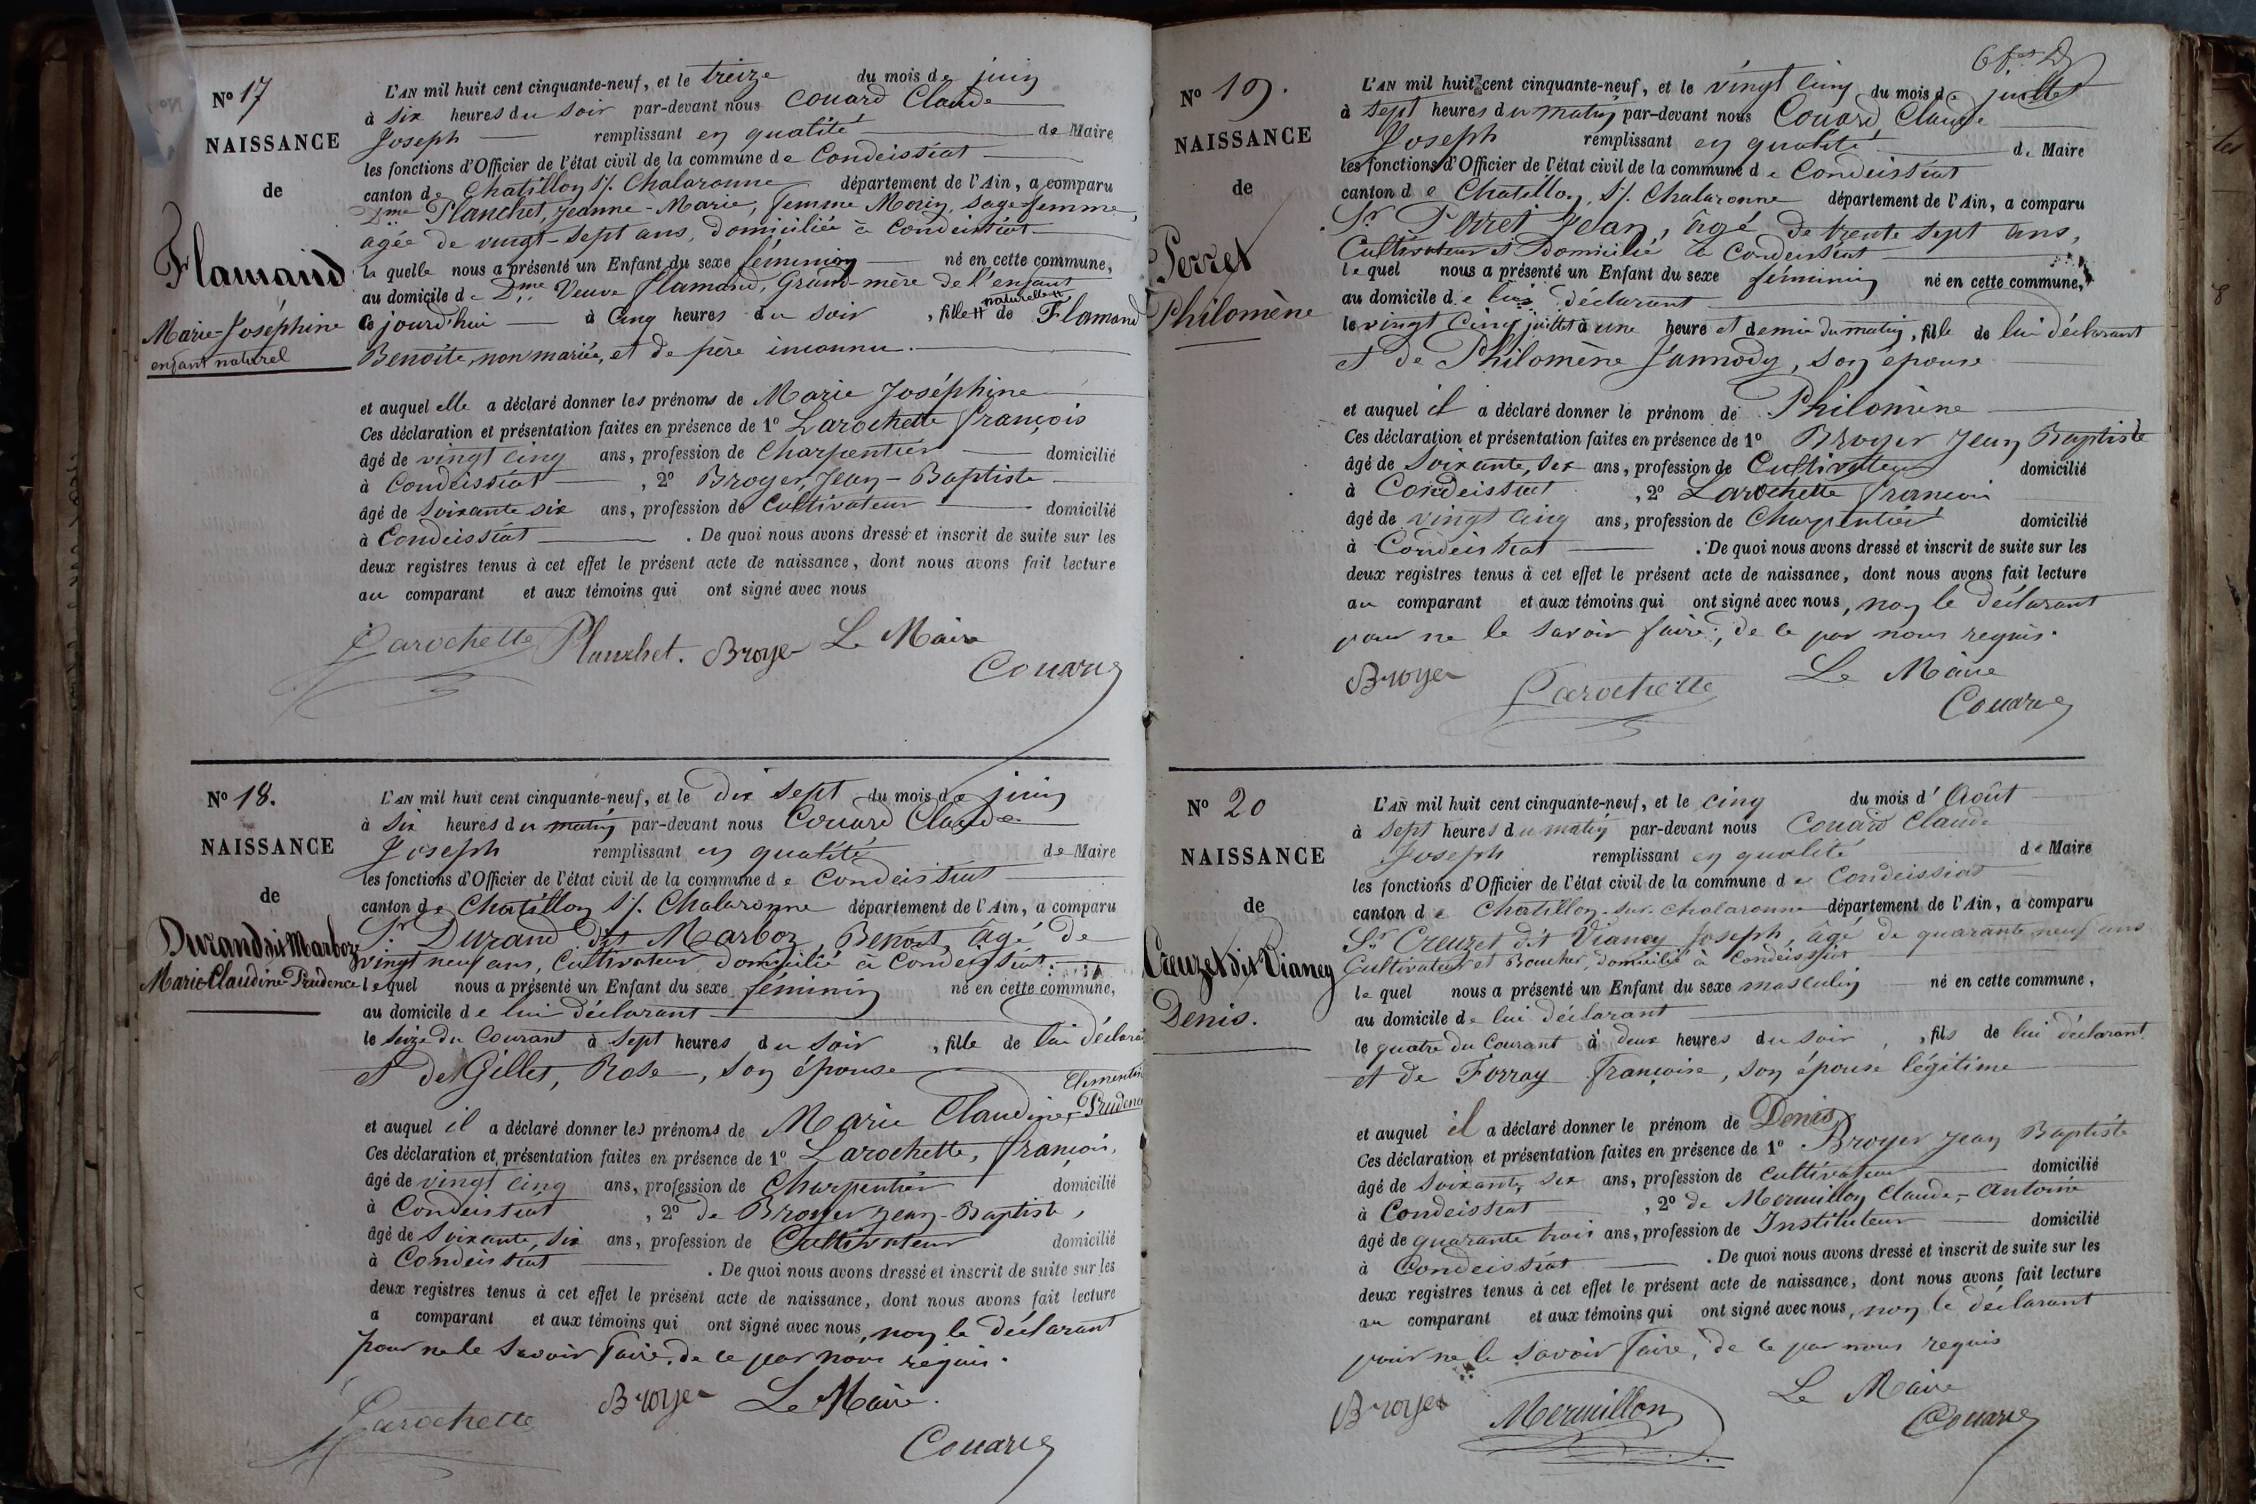 N° 17
NAISSANCE
de
Flamand
Marie-Joséphine
enfant naturel
L'AN mil huit cent cinquante-neuf, et le treize du mois de juin
à six heures du soir par-devant nous Couard Claude
Joseph remplissant en qualité de Maire
les fonctions d'Officier de l'état civil de la commune de Condeissiat
canton de Chatillon s/. Chalaronne département de l'Ain, a comparu
Dme Planchet, Jeanne-Marie, femme Morin, sage-femme,
agée de vingt-sept ans, domiciliée à Condeissiat
la quelle nous a présenté un Enfant du sexe féminin né en cette commune,
au domicile de Dme Veuve Flamand, Grand-mère de l'enfant
naturelle
Ce jourd'hui à cinq heures du soir, fille de Flamand
Benoite, non mariée, et de père inconnu.
et auquel elle a déclaré donner les prénoms de Marie Joséphine
Ces déclaration et présentation faites en présence de 1° Larochette françois
âgé de vingt cinq ans, profession de Charpentier domicilié
à Condeissiat, 2° Broyer, Jean-Baptiste
âgé de soixante six ans, profession de Cultivateur domicilié
à Condeissiat. De quoi nous avons dressé et inscrit de suite sur les
deux registres tenus à cet effet le présent acte de naissance, dont nous avons fait lecture
au comparant et aux témoins qui ont signé avec nous
Larochette Planchet. Broyer Le Maire
Couard
N° 18.
NAISSANCE
de
Durand dit Marboz
Marie-Claudine-Prudence
L'AN mil huit cent cinquante-neuf, et le dix sept du mois de juin
à six heures du matin par-devant nous Couard Claude
Joseph remplissant en qualité de Maire
les fonctions d'Officier de l'état civil de la commune de Condeissiat
canton de Chatillon s/. Chalaronne département de l'Ain, a comparu
Sr Durand dit Marboz, Benoit, âgé de
vingt neuf ans, Cultivateur domicilié à Condeissiat.
lequel nous a présenté un Enfant du sexe féminin né en cette commune,
au domicile de lui déclarant
le seize du courant à sept heures du soir, fille de lui déclarant
et de Gillet, Rose, son épouse
Clementine
Prudence
et auquel il a déclaré donner les prénoms de Marie Claudine
Ces déclaration et présentation faites en présence de 1° Larochette, françois,
âgé de vingt cinq ans, profession de Charpentier domicilié
à Condeissiat, 2° de Broyer Jean-Baptiste,
âgé de soixante, six ans, profession de Cultivateur domicilié
à Condeissiat. De quoi nous avons dressé et inscrit de suite sur les
deux registres tenus à cet effet le présent acte de naissance, dont nous avons fait lecture
a comparant et aux témoins qui ont signé avec nous, non le déclarant
pour ne le savoir faire, de ce par nous requis.
Larochette Broyer Le Maire.
Couard
N° 19.
NAISSANCE
de
Perret
Philomène
L'AN mil huit cent cinquante-neuf, et le vingt cinq du mois de juillet
à sept heures du matin par-devant nous Couard Claude
Joseph remplissant en qualité de Maire
les fonctions d'Officier de l'état civil de la commune de Condeissiat
canton de Chatillon, s/. Chalaronne département de l'Ain, a comparu
Sr Perret Jean, âgé de trente sept ans,
Cultivateur et Domicilié à Condeissiat
lequel nous a présenté un Enfant du sexe féminin né en cette commune,
au domicile de lui déclarant
le vingt cinq juillet à une heure et demie du matin, fille de lui déclarant
et de Philomène Jannody, son épouse
et auquel il a déclaré donner le prénom de Philomène
Ces déclaration et présentation faites en présence de 1° Broyer Jean Baptiste
âgé de soixante, six ans, profession de Cultivateur domicilié
à Condeissiat, 2° Larochette françois
âgé de vingt cinq ans, profession de Charpentier domicilié
à Condeissiat. De quoi nous avons dressé et inscrit de suite sur les
deux registres tenus à cet effet le présent acte de naissance, dont nous avons fait lecture
au comparant et aux témoins qui ont signé avec nous, non le déclarant
pour ne le savoir faire, de ce par nous requis.
Broyer Larochette Le Maire
Couard
N° 20
NAISSANCE
de
Creuzet dit Vianey
Denis.
L'AN mil huit cent cinquante-neuf, et le cinq du mois d'Août
à sept heures du matin par-devant nous Couard Claude
Joseph remplissant en qualité de Maire
les fonctions d'Officier de l'état civil de la commune de Condeissiat
canton de Chatillon-sur-Chalaronne département de l'Ain, a comparu
Sr Creuzet dit Vianey Joseph, âgé de quarante neuf ans
Cultivateur et Boucher, domicilié à Condeissiat
lequel nous a présenté un Enfant du sexe masculin né en cette commune,
au domicile de lui déclarant
le quatre du Courant à deux heures du soir, fils de lui déclarant
et de Forray françoise, son épouse légitime
et auquel il a déclaré donner le prénom de Denis
Ces déclaration et présentation faites en présence de 1° Broyer Jean Baptiste
âgé de soixante, six ans, profession de cultivateur domicilié
à Condeissiat, 2° de Mermillon Claude-Antoine
âgé de quarante trois ans, profession de Instituteur domicilié
à Condeissiat. De quoi nous avons dressé et inscrit de suite sur les
deux registres tenus à cet effet le présent acte de naissance, dont nous avons fait lecture
au comparant et aux témoins qui ont signé avec nous, non le déclarant
pour ne le savoir faire, de ce par nous requis
Broyer Mermillon Le Maire
Couard